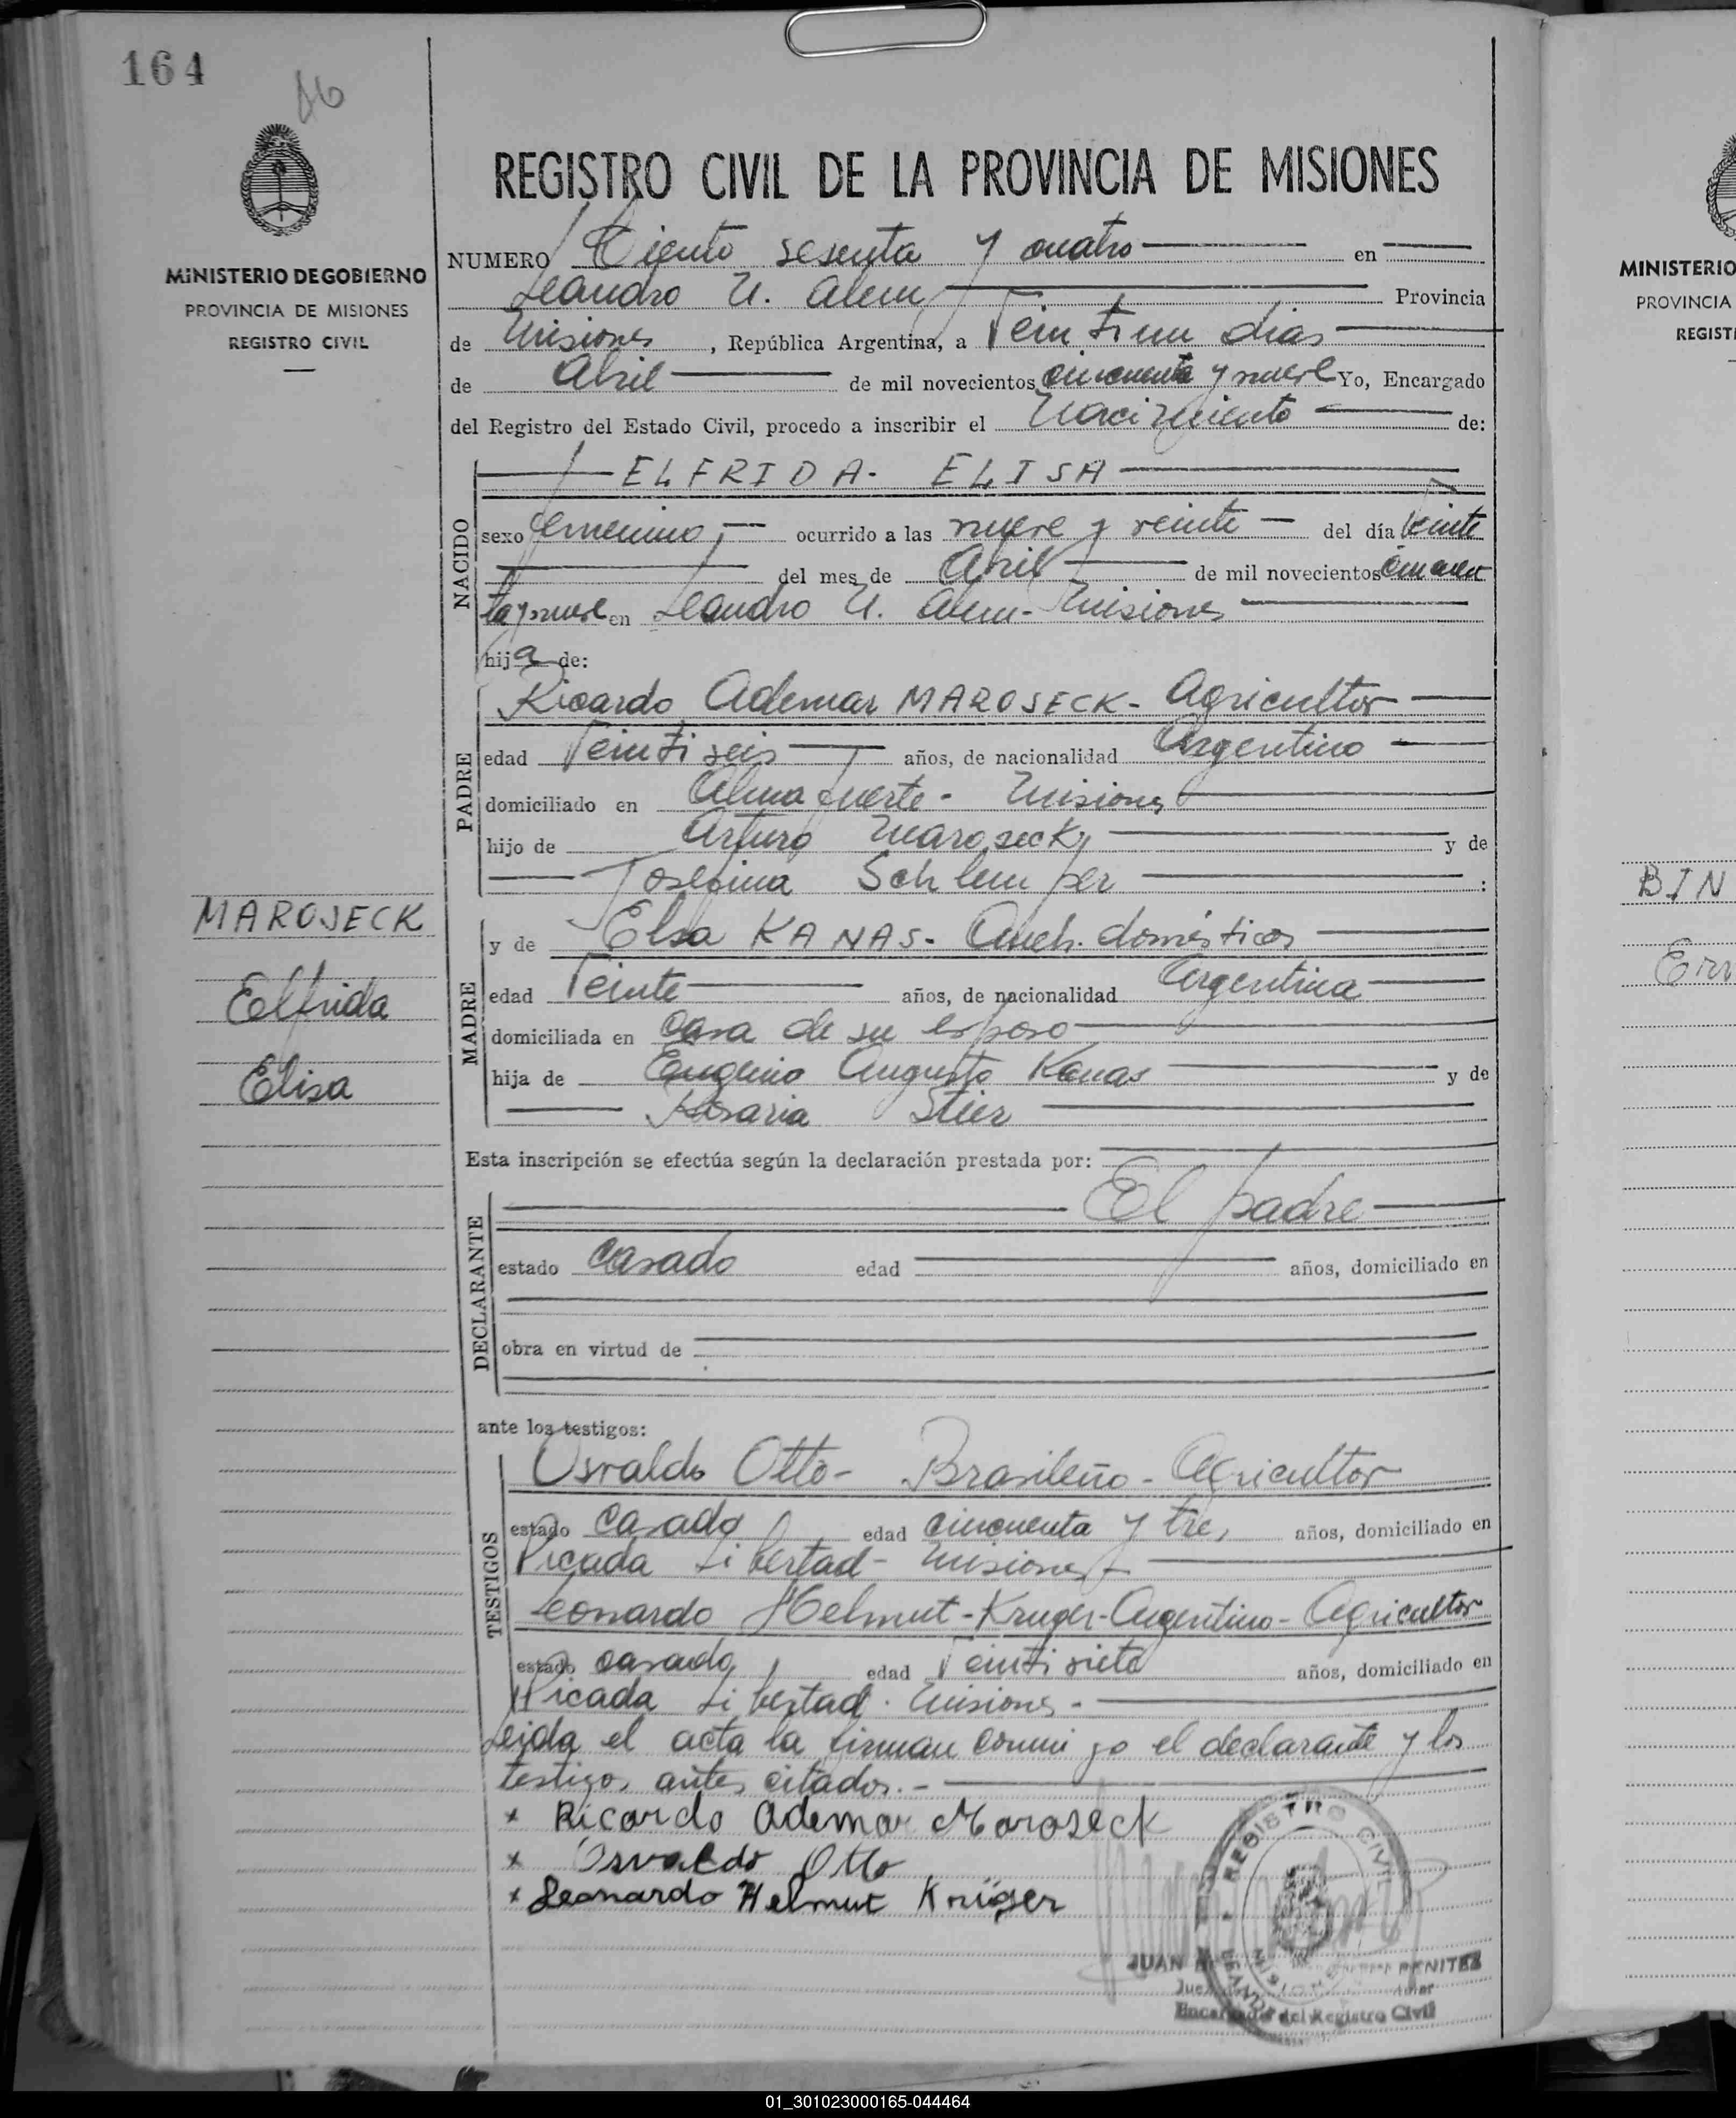 164
46
MINISTERIO DE GOBIERNO
PROVINCIA DE MISIONES
REGISTRO CIVIL
REGISTRO CIVIL DE LA PROVINCIA DE MISIONES
NUMERO Ciento sesenta y cuatro en
Leandro N. Alem Provincia
de Misiones, República Argentina, a Veintiun dias
de Abril de mil novecientos cincuenta y nueve Yo, Encargado
del Registro del Estado Civil, procedo a inscribir el Nacimiento de:
NACIDO
ELFRIDA ELISA
sexo femenino, ocurrido a las nueve y veinte del día veinte
del mes de Abril de mil novecientos cincuen
ta y nueve en Leandro N. Alem - Misiones
hija de:
PADRE
Ricardo Ademar MAROSECK - Agricultor
edad Veintiseis años, de nacionalidad Argentino
domiciliado en Almafuerte - Misiones
hijo de Arturo Marosecky y de
Josefina Schlemper :
MAROSECK
Elfrida
Elisa
MADRE
y de Elsa KANAS - Queh. domésticos
edad Veinte años, de nacionalidad Argentina
domiciliada en casa de su esposo
hija de Eugenio Augusto Kanas y de
Rosaria Stier
Esta inscripción se efectúa según la declaración prestada por:
DECLARANTE
El padre
estado casado edad años, domiciliado en
obra en virtud de
ante los testigos:
TESTIGOS
Osvaldo Otto - Brasileño - Agricultor
estado casado, edad cincuenta y tres, años, domiciliado en
Picada Libertad - Misiones
Leonardo Helmut - Kruger - Argentino - Agricultor
estado casado, edad Veintisiete años, domiciliado en
Picada Libertad - Misiones -
Leida el acta la firman conmigo el declarante y los
testigos antes citados. -
x Ricardo Ademar Maroseck
x Osvaldo Otto
x Leonardo Helmut Krüger
REGISTRO CIVIL
JUAN BENITEZ
Encargado del Registro Civil
MINISTERIO
PROVINCIA
REGIST
BIN
01_301023000165-044464